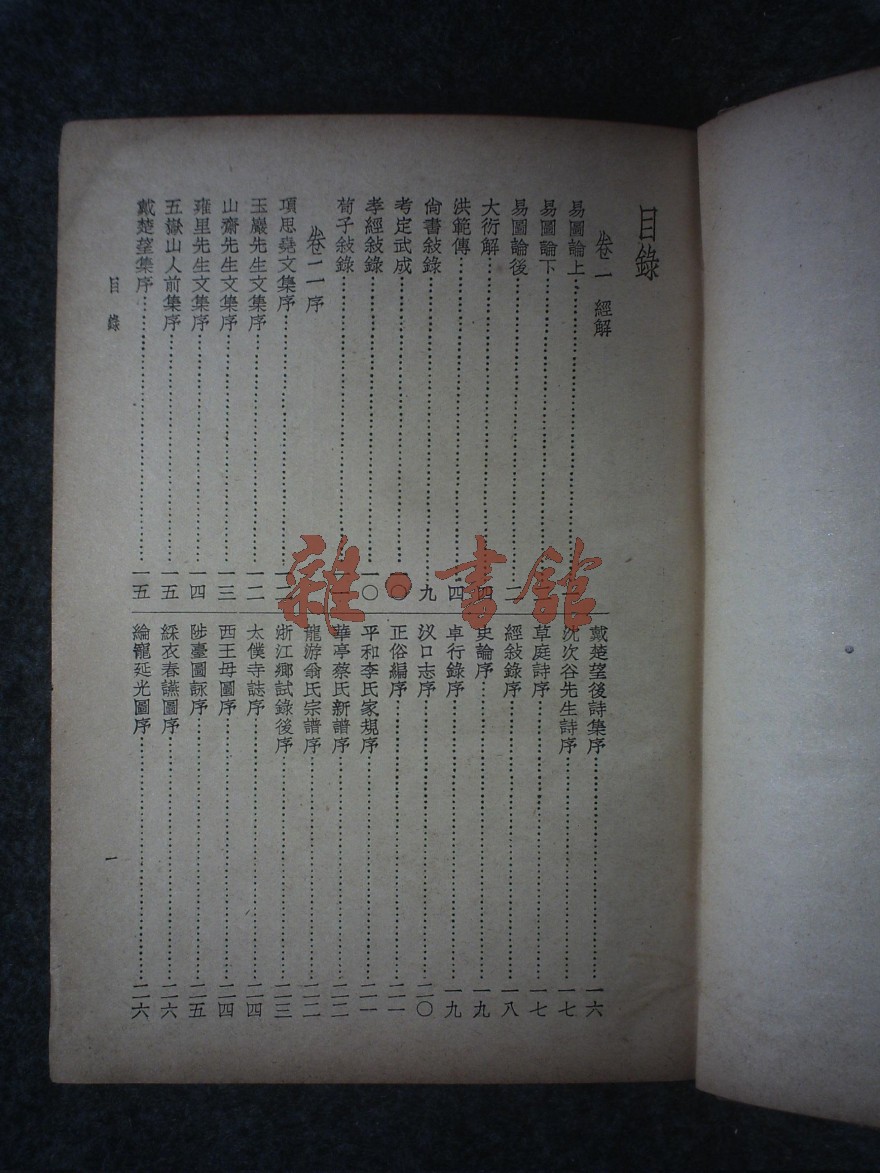 目錄
卷一 經解
易圖論上
易圖論下
易圖論後 二
大衍解 四
洪範傳 四
尙書敍錄 九
考定武成
孝經敍錄 一〇
荀子敍錄
卷二 序
項思堯文集序
玉巖先生文集序 一二
山齋先生文集序 一三
雍里先生文集序 一四
五嶽山人前集序 一五
戴楚望集序 一五
戴楚望後詩集序 一六
沈次谷先生詩序 一七
草庭詩序 一七
經敍錄序 一八
史論序 一九
卓行錄序 一九
汊口志序 二〇
正俗編序 二一
平和李氏家規序 二一
華亭蔡氏新譜序 二二
龍游翁氏宗譜序 二二
浙江鄉試錄後序 二三
太僕寺誌序 二四
西王母圖序 二四
陟臺圖詠序 二五
綵衣春讌圖序 二六
綸寵延光圖序 二六
目錄
一
雜·書館